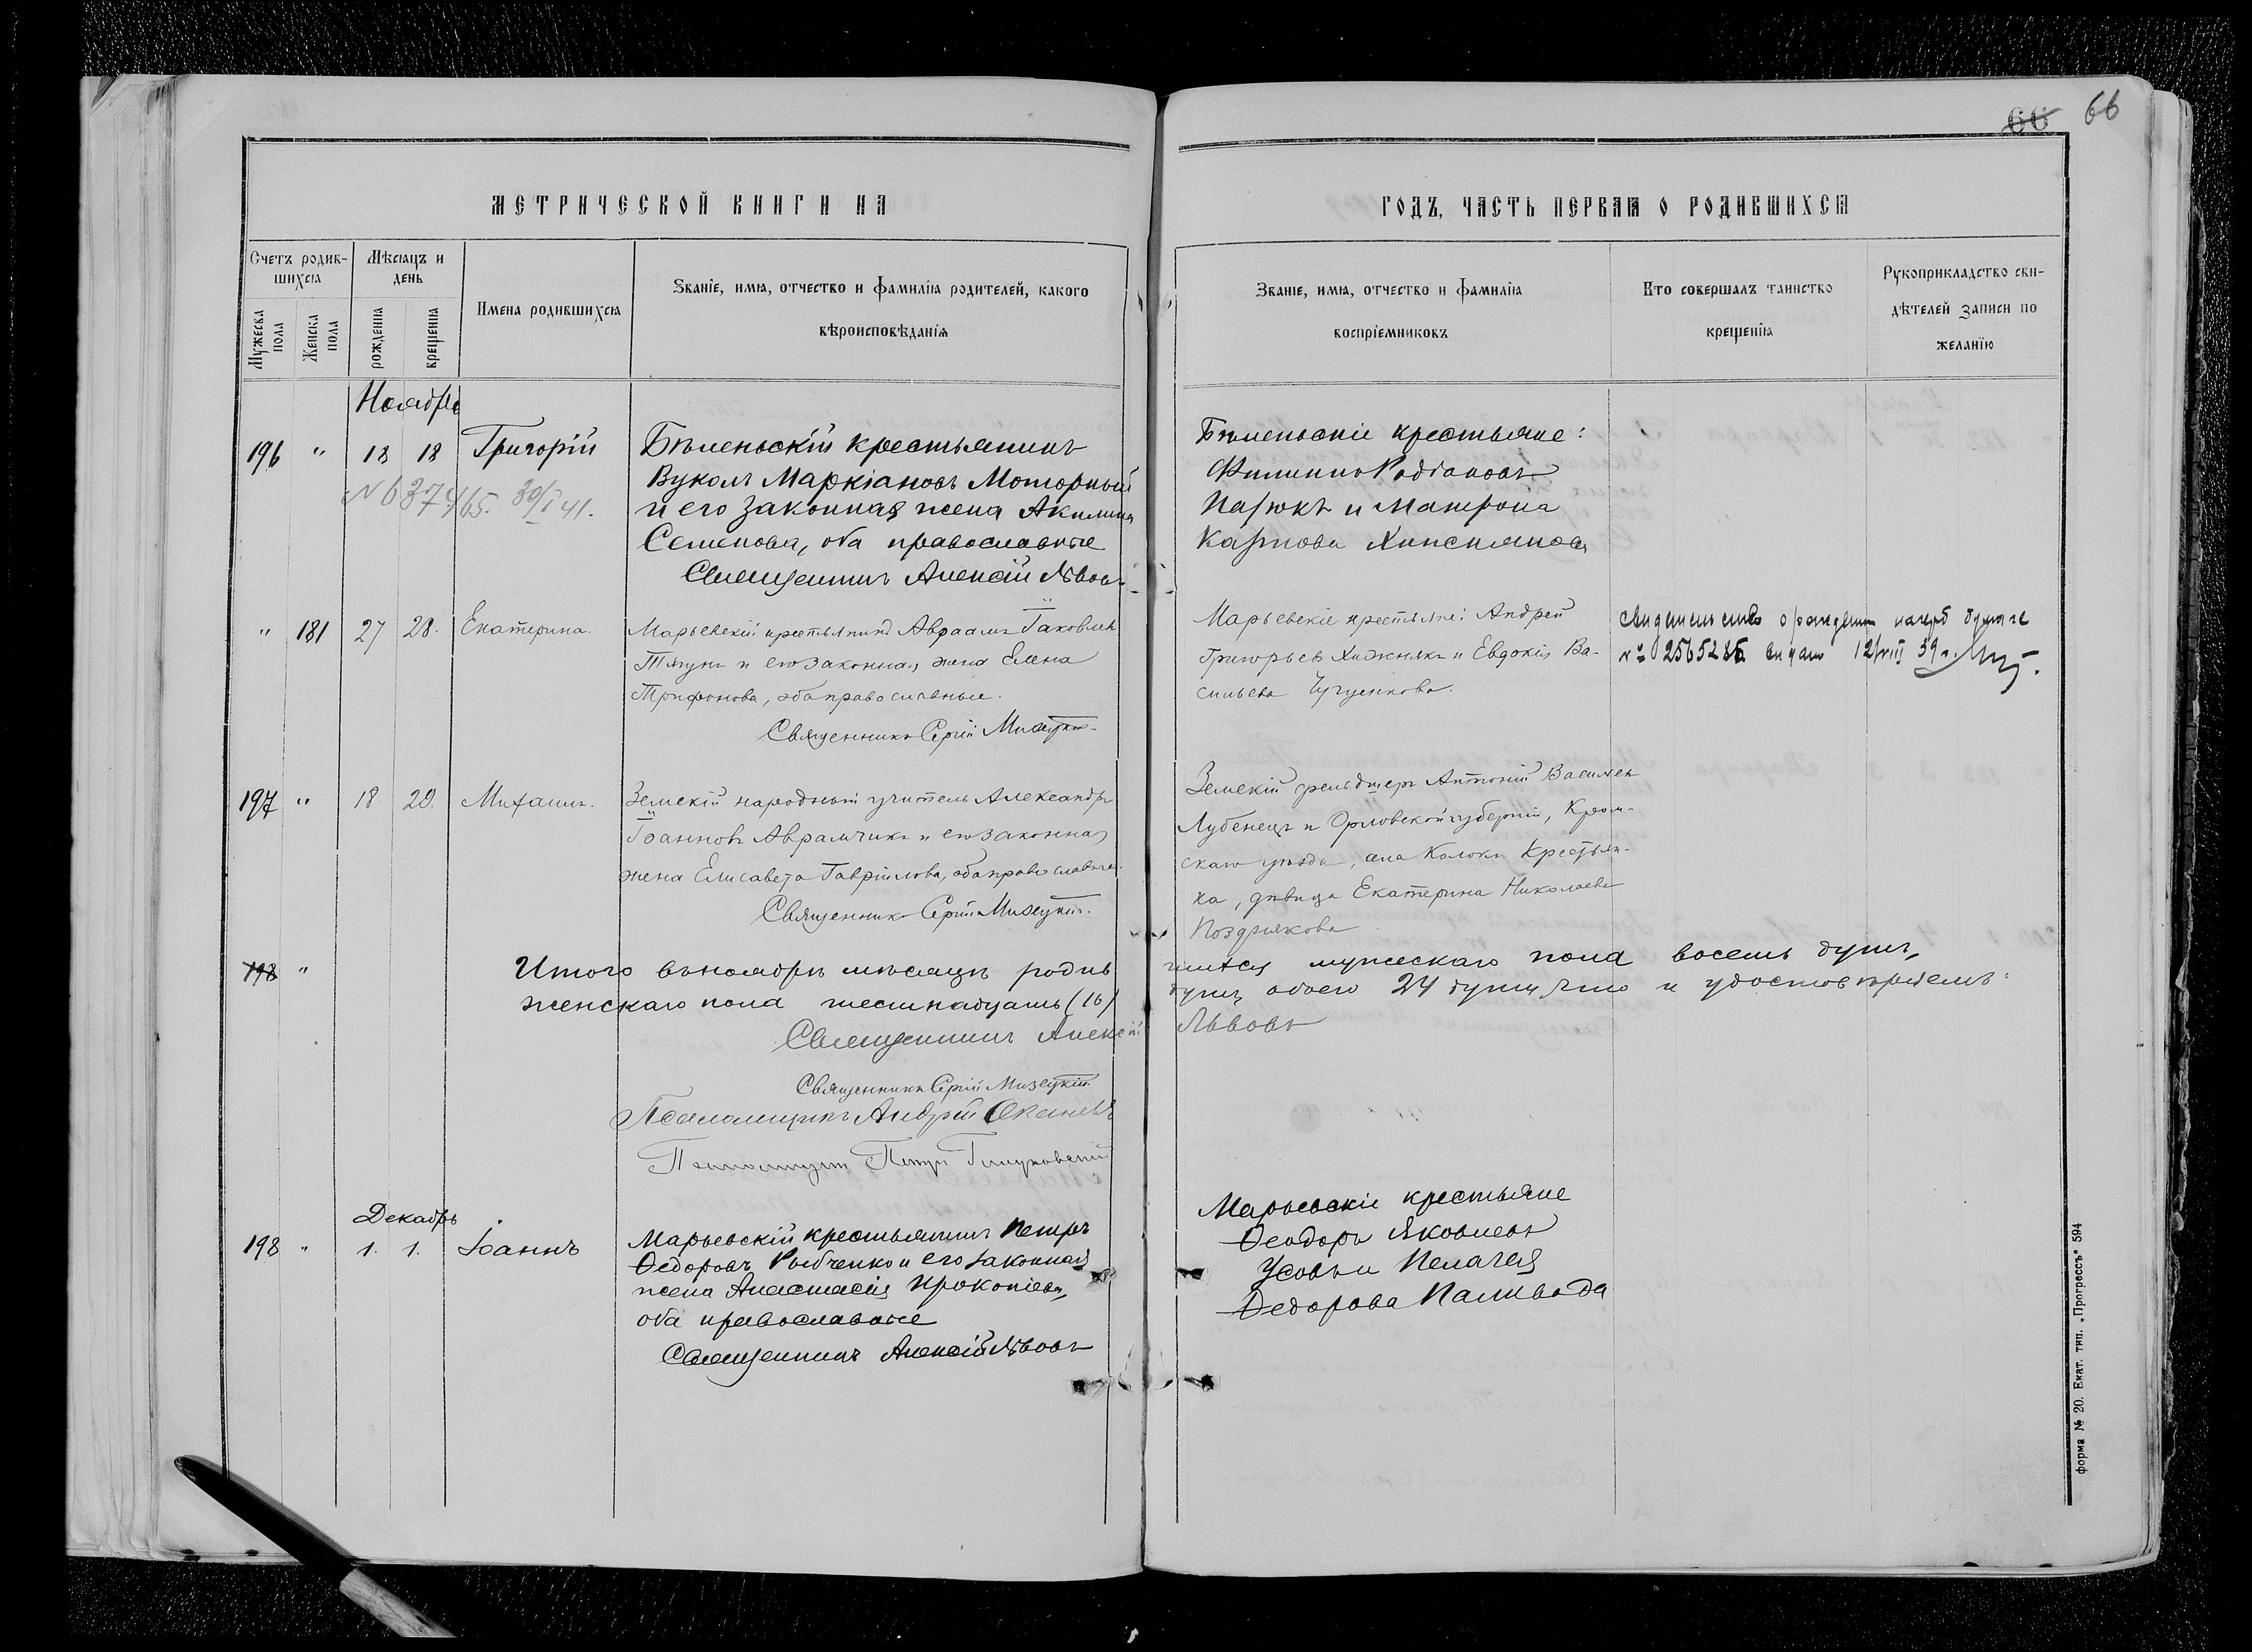 66 66
МЕТРИЧЕСКОЙ КНИГИ НА
ГОДЪ, ЧАСТЬ ПЕРВАЯ О РОДИВШИХСЯ
Счетъ родив-
шихся
Мужеска пола
Женска пола
Мѣсяцъ и
день
рожденія
крещенія
Имена родившихся
Званіе, имя, отчество и фамилія родителей, какого
вѣроисповѣданія
Званіе, имя, отчество и фамилія
воспріемниковъ
Кто совершалъ таинство
крещенія
Рукоприкладство сви-
дѣтелей записи по
желанію
Ноябрь
196 " 18 18 Григорій
Бѣленьскій крестьянинъ
Вуколъ Маркіановъ Моторный
и его законная жена Акилина
Семенова, оба православные
Священникъ Алексій Львовъ
Бѣленьскіе крестьяне:
Филиппъ Родіоновъ
и Матрона
Карпова
" 181 27 28. Екатерина.
Марьевскій крестьянинъ Авраамъ Іаковлев
Тягунъ и его законная жена Елена
Трифонова, оба православные.
Священникъ Сергій Мизецкій.
Марьевскіе крестьяне: Андрей
Григорьев Хижнякъ и Евдокія Ва-
сильева
свидетельство о рождении
12/VIII 39 г.
197 " 18 20. Михаилъ.
Земскій народный учитель Александръ
Іоанновъ Аврамчикъ и его законная
жена Елисавета Гавріилова, оба православные.
Священникъ Сергій Мизецкій.
Земскій фельдшеръ Антоній Васильев
Лубенецъ и Орловской губерніи, Кром-
скаго уѣзда, села Колокъ крестьян-
ка, дѣвица Екатерина Николаева
Позднякова
198 "
Итого въ ноябрѣ мѣсяцѣ родив шихся мужескаго пола восемь душъ,
женскаго пола шестнадцать (16) душъ обоего 24 души что и удостовѣряемъ:
Священникъ Алексій Львовъ
Священникъ Сергій Мизецкій
Псаломщикъ Андрей
Псаломщикъ Петръ
Декабрь
198 " 1. 1. Іоаннъ
Марьевскій крестьянинъ Петръ
Ѳедоровъ Рыбченко и его законная
жена Анастасія Прокопіева,
оба православные
Священникъ Алексій Львовъ
Марьевскіе крестьяне
Ѳеодоръ Яковлевъ
Усовъ и Пелагея
Ѳедорова Паливода
форма № 20. Екат. тип. „Прогрессъ“ 594